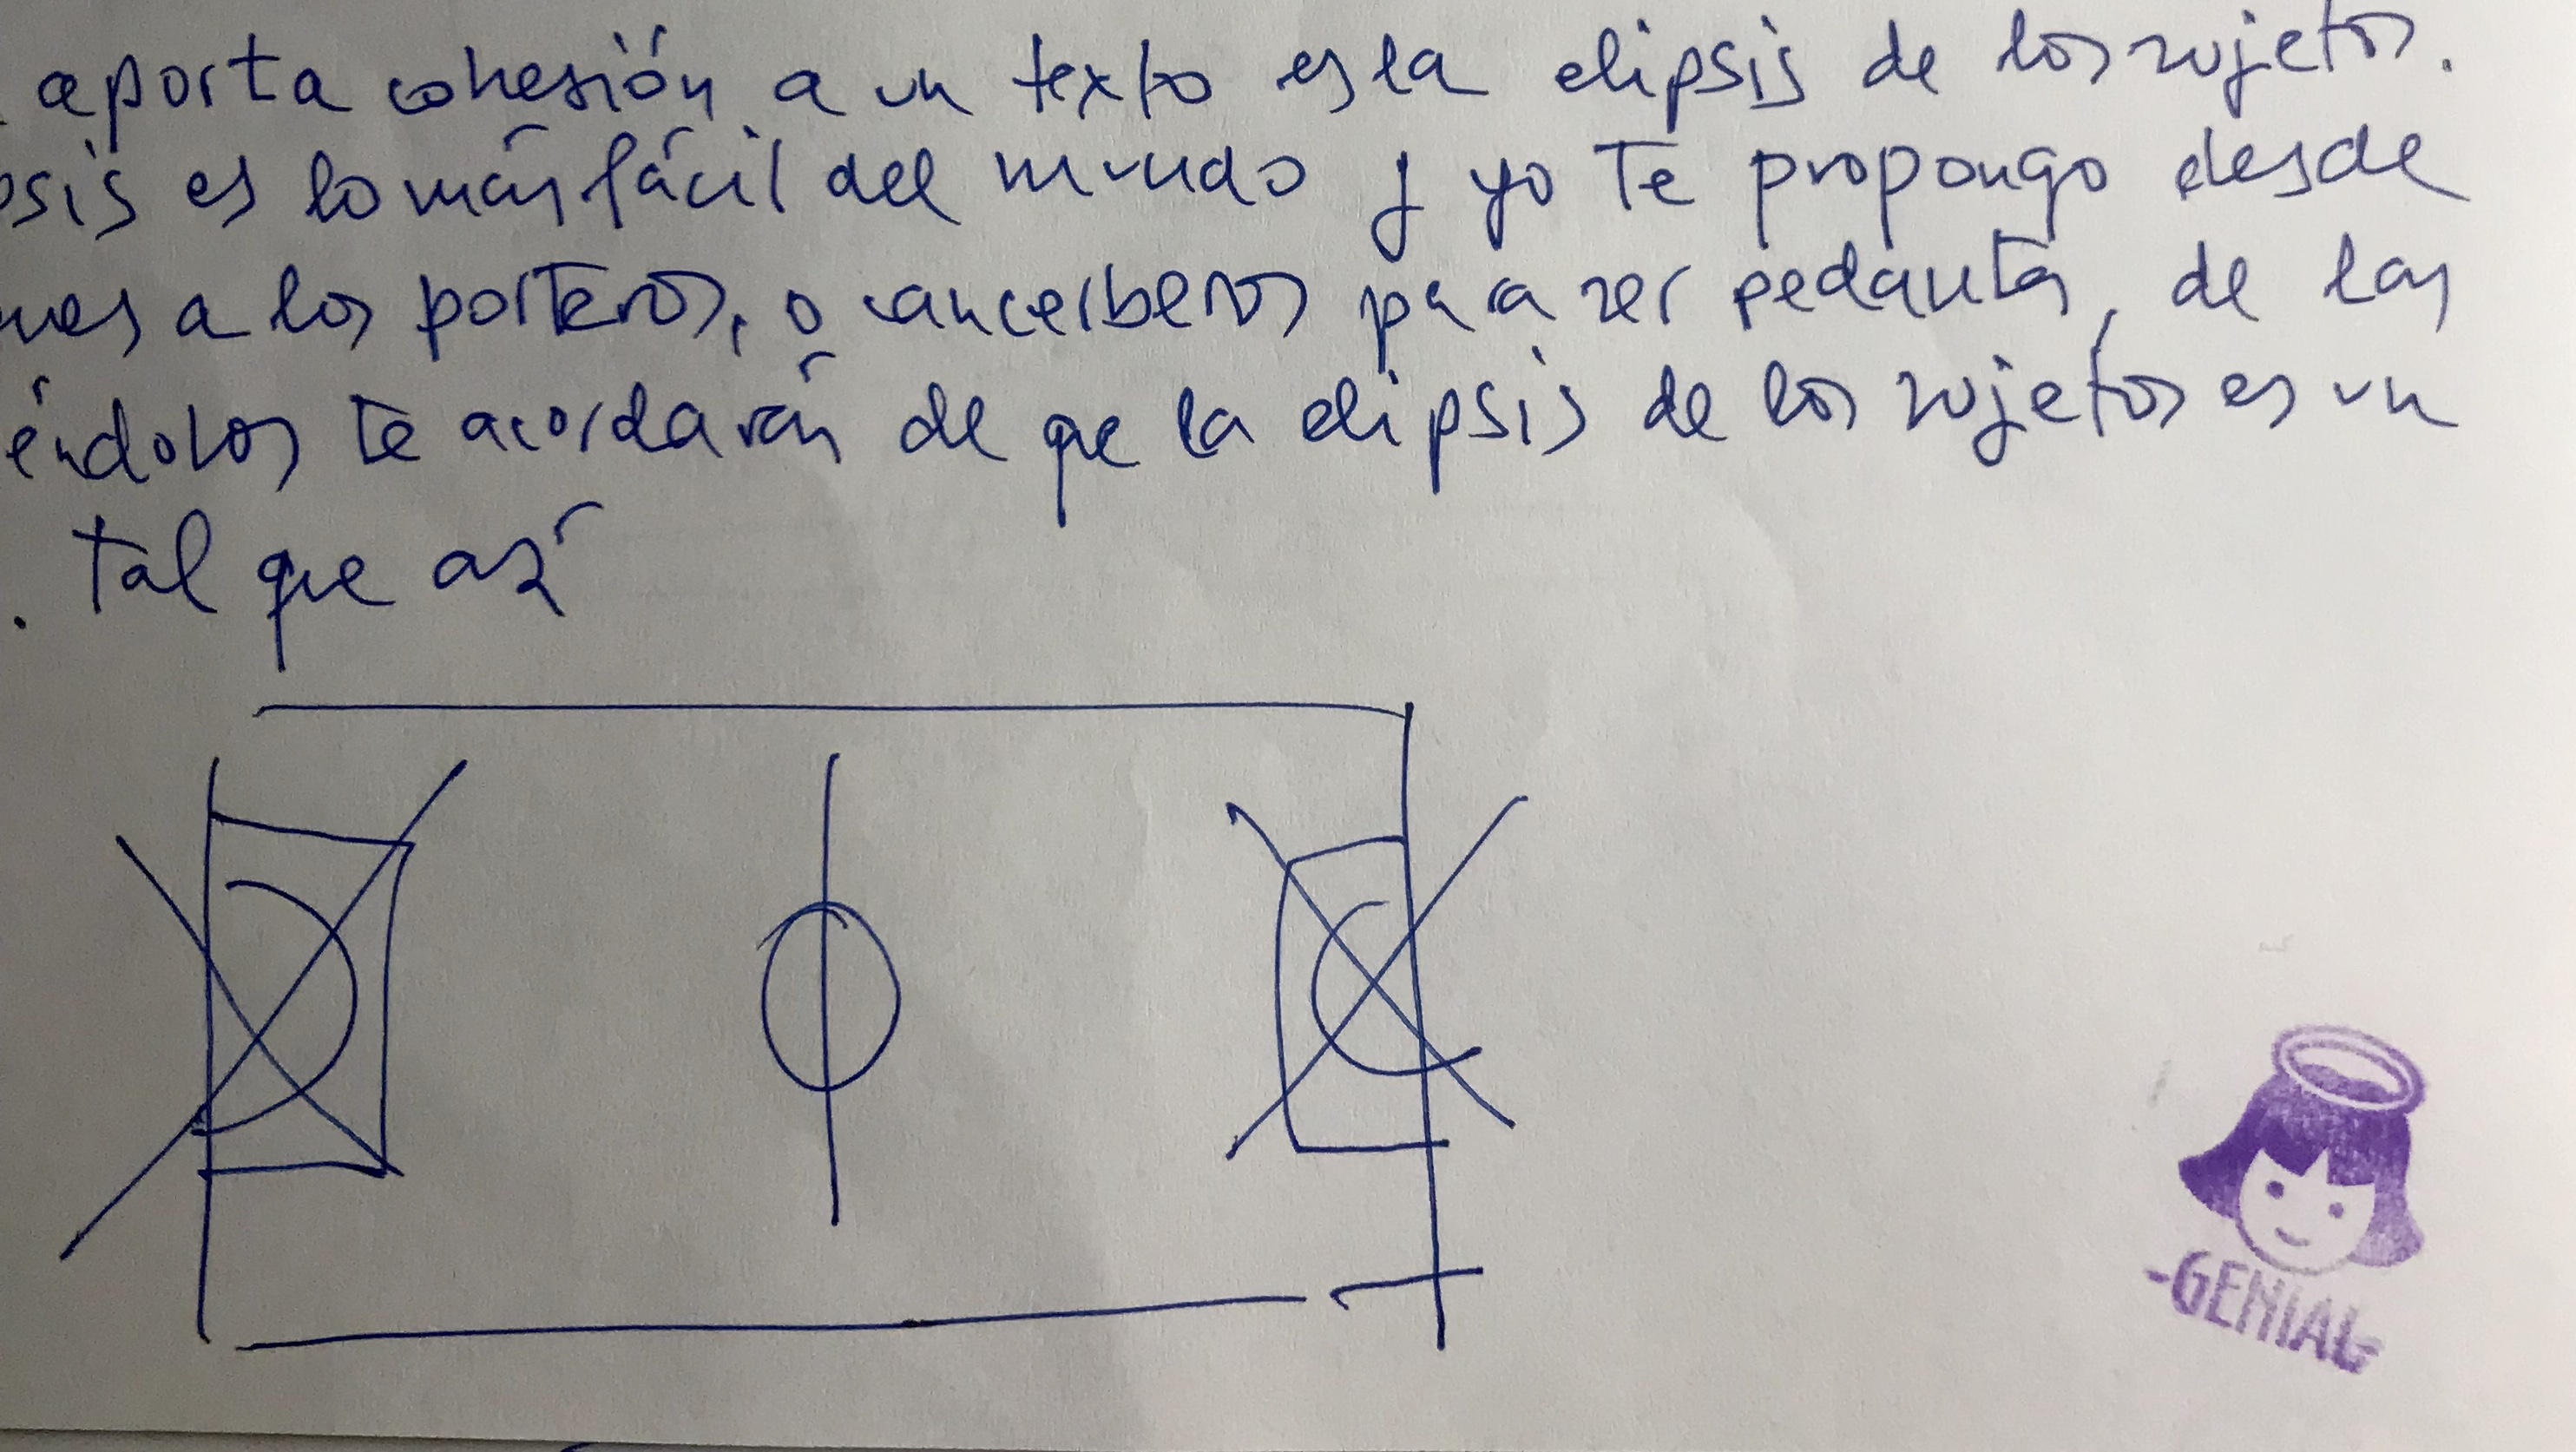 aporta cohesión a un texto es la elipsis de los sujetos.
psis es lo más fácil del mundo y yo te propongo desde
nes a los porteros, o cancerberos para ser pedanta, de las
éndolos te acordarás de que la elipsis de los sujetos es un
. Tal que así
-GENIAL-